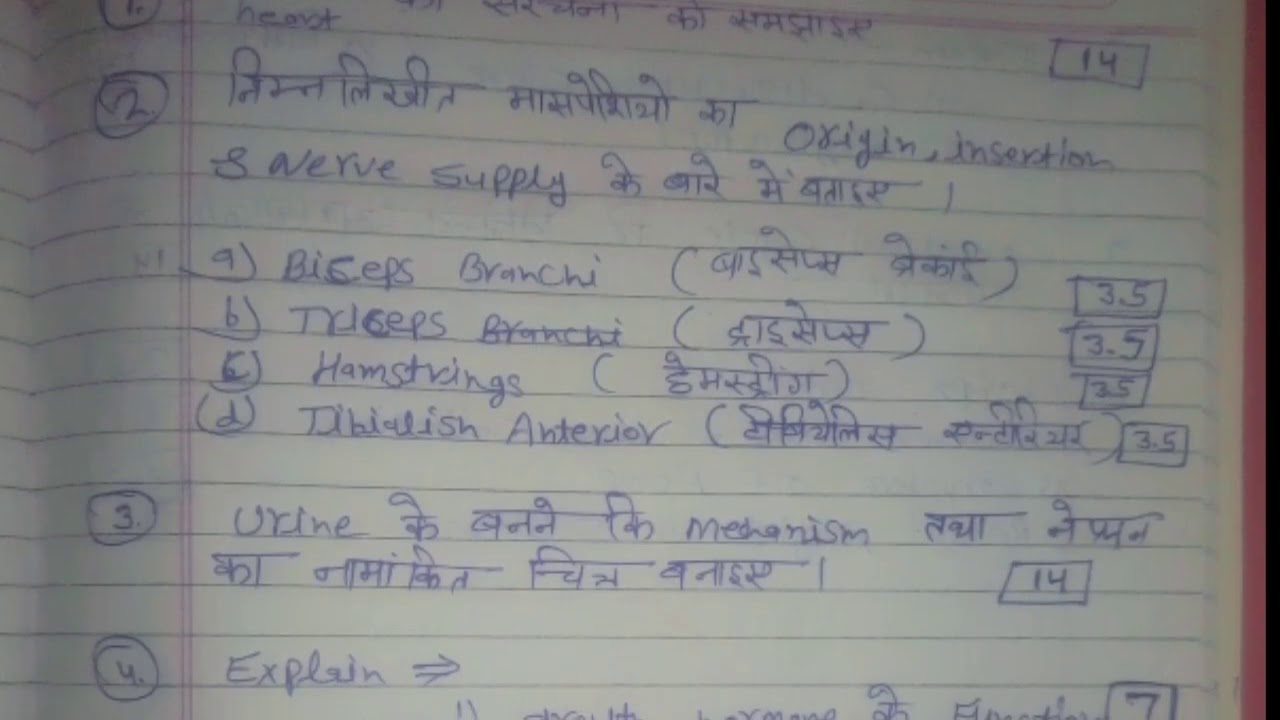 1. heart की संरचना को समझाइए
14
2. निम्नलिखीत मासपेशियो का Origin, insertion
& Nerve Supply के बारे में बताइए ।
a) Biceps Branchi (बाईसेप्स ब्रेकाई) 3.5
b) Triceps Branchi (ट्राइसेप्स) 3.5
c) Hamstrings (हैमस्ट्रींग) 3.5
(d) Tibialish Anterior (टीबियेलिस एन्टीरियर) 3.5
3. Urine के बनने कि mechanism तथा नेफ्रान
का नामांकित चित्र बनाइए । 14
4. Explain ⇒
1) hormone के 7